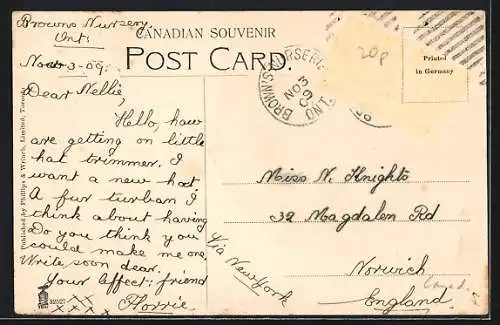 Browns Nursery
Ont:
Nov 3-09.
CANADIAN SOUVENIR
POST CARD.
BROWN'S NURSERIE
NO 3
09
ONT.
20p
Printed
in Germany
Dear Nellie,
Hello, how
are getting on little
hat trimmer. I
want a new hat
A fur turban I
think about having
Do you think you
could make me one.
Write soon dear.
Your Affect: friend
Florrie.
xxxx
Miss N. Knights
32 Magdalen Rd
Norwich
England
Via New York
Canad.
Published by Phillips & Wrinch, Limited, Toronto